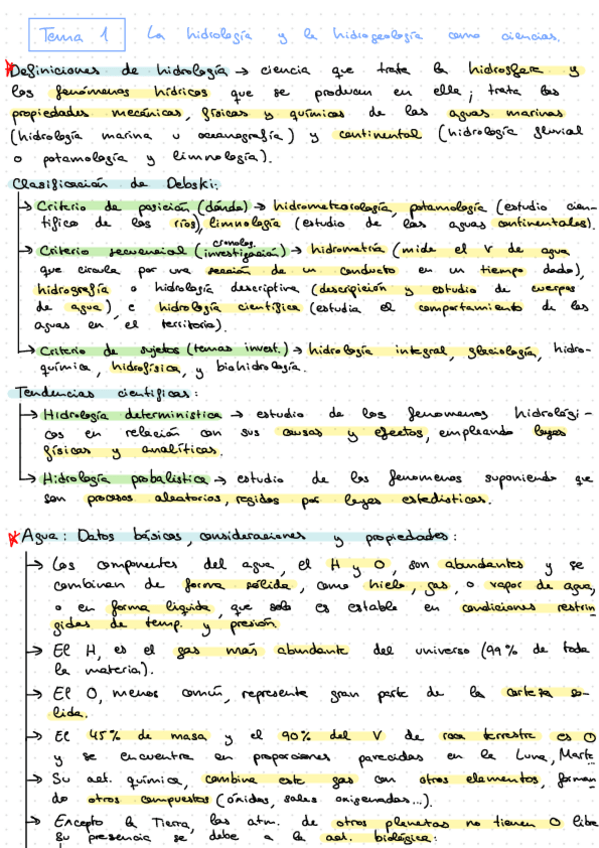 Tema 1 La hidrología y la hidrogeología como ciencias.
Definiciones de hidrología → ciencia que trata la hidrosfera y
los fenómenos hídricos que se producen en ella; trata las
propiedades mecánicas, físicas y químicas de las aguas marinas
(hidrología marina u oceanografía) y continental (hidrología fluvial
o potamología y limnología).
Clasificación de Deboski:
→ Criterio de posición (dónde) → hidrometeorología, potamología (estudio cien-
tífico de los ríos), limnología (estudio de las aguas continentales).
→ Criterio secuencial (cronolog. investigación) → hidrometría (mide el V de agua
que circula por una sección de un conducto en un tiempo dado),
hidrografía o hidrología descriptiva (descripición y estudio de cuerpos
de agua) e hidrología científica (estudia el comportamiento de las
aguas en el territorio).
→ Criterio de sujetos (temas invest.) → hidrología integral, glaciología, hidro-
química, hidrofísica, y biohidrología.
Tendencias científicas:
→ Hidrología determinística → estudio de los fenomenos hidrológi-
cos en relación con sus causas y efectos, empleando leyes
físicas y analíticas.
→ Hidrología probalística → estudio de los fenomenos suponiendo que
son procesos aleatorios, regidos por leyes estadísticas.
Agua: Datos básicos, consideraciones y propiedades:
→ Los componentes del agua, el H y O, son abundantes y se
combinan de forma sólida, como hielo, gas, o vapor de agua,
o en forma líquida, que solo es estable en condiciones restrin
gidas de temp. y presión.
→ El H, es el gas más abundante del universo (99% de toda
la materia).
→ El O, menos común, representa gran parte de la corteza só-
lida.
→ El 45% de masa y el 90% del V de roca terrestre es O
y se encuentra en proporciones parecidas en la Luna, Marte
→ Su act. química, combina este gas con otros elementos, forman
do otros compuestos (óxidos, sales oxigenadas...).
→ Excepto la Tierra, las atm. de otros planetas no tienen O libe
Su presencia se debe a la act. biológica: